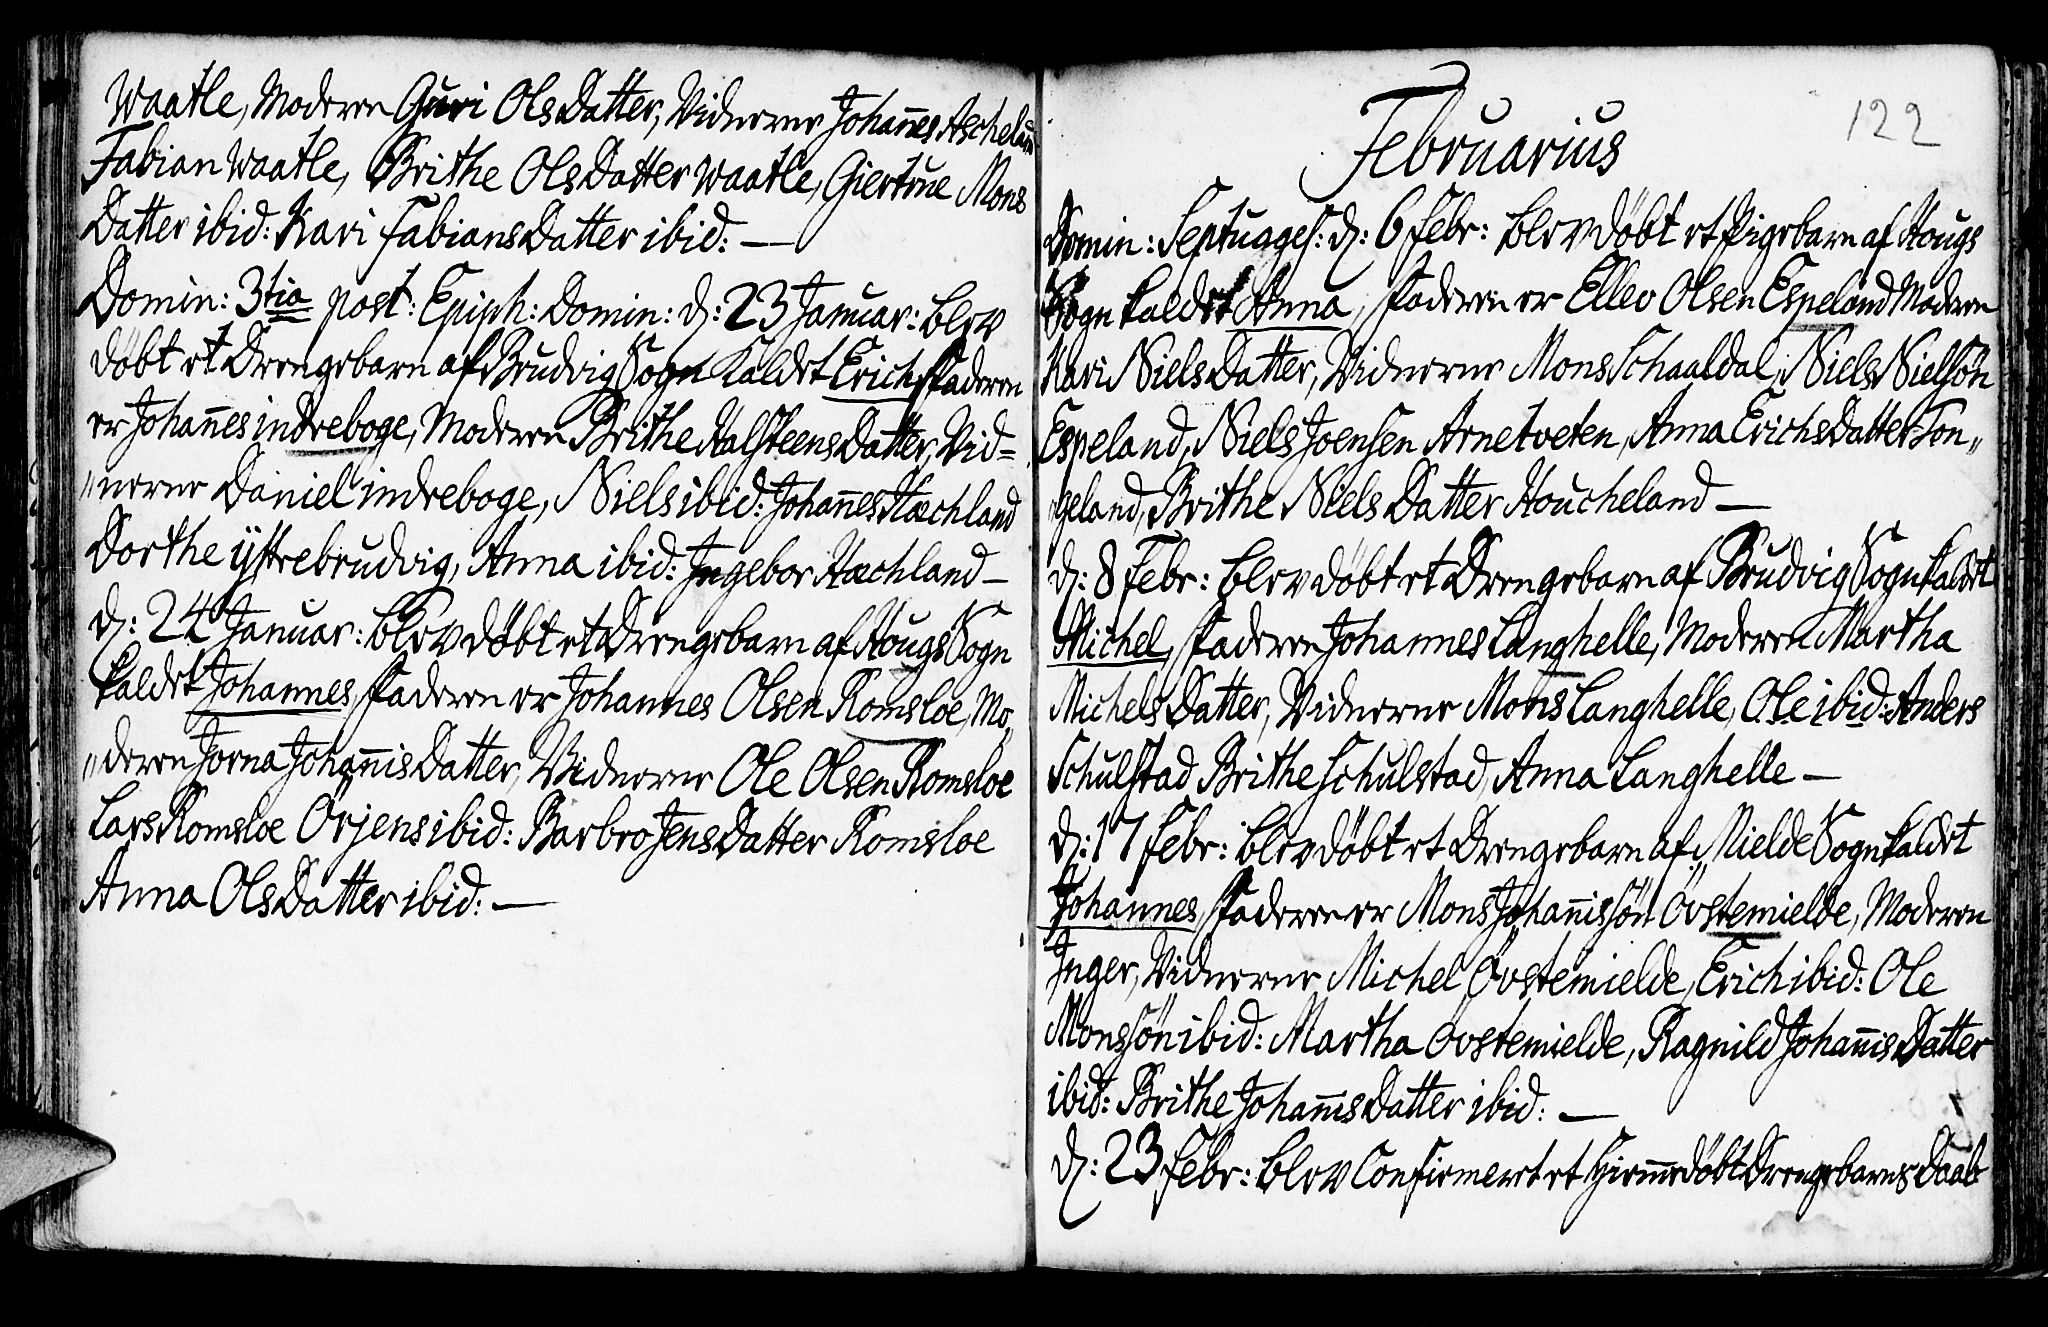 Waatle, Moderen Guri OlsDatter, Vidnerne Johan̄es Ascheland
Fabian Waatle, Brithe OlsDatter Waatle, Giertrue Mons
Datter ibid: Kari FabiansDatter ibid: —
Domin: 3tia post: Epiph: Domin: d: 23 Januar: blev
döbt et Drengebarn af Brudvig Sogn Kaldet Erich, Faderen
er Johan̄es indreboge, Moderen Brithe HalsteensDatter, Vid=
„nerne Daniel indreboge, Niels ibid: Johan̄es Hæchland
Dorthe ystrebrudvig, Anna ibid: Ingebor Hæchland —
d: 24 Januar: blev döbt et Drengebarn af Hougs Sogn
kaldet Johannes, Faderen er Johannes Olsen Romsloe, Mo„
„deren Jorna Johan̄isDatter, Vidnerne Ole Olsen Romsloe
Lars Romsloe Örjens ibid: Barbro JensDatter Romsloe
Anna OlsDatter ibid: —
122
Februarius
Domin: Septuages: d: 6 Febr: blev döbt et Pigebarn af Hougs
Sogn kaldet Anna, Faderen er Ellev Olsen Espeland Moderen
Kari NielsDatter, Vidnerne Mons Schaaldal, Niels Nielsön
Espeland, Niels Joensen Arnetveten, Anna ErichsDatter Son„
„geland, Brithe NielsDatter Houcheland —
d: 8 Febr: blev döbt et Drengebarn af Brudvig Sogn kaldet
Michel, Faderen Johannes Langhelle, Moderen Martha
MichelsDatter, Vidnerne Mons Langhelle, Ole ibid: Anders
Schulstad Brithe Schulstad, Anna Langhelle —
d: 17 Febr: blev döbt et Drengebarn af Mielde Sogn kaldet
Johannes, Faderen er Mons Johan̄issön Övstemielde, Moderen
Inger, Vidnerne Michel Övstemielde, Erich ibid: Ole
Monssön ibid: Martha Övstemielde, Ragnild Johan̄isDatter
ibid: Brithe Johan̄isDatter ibid: —
d: 23 Febr: blev Confirmeret et Hiem̄edöbt Drengebarns Daab